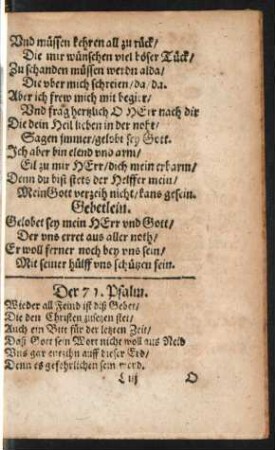 Vnd müssen kehren all zu rück/
Die mir wünschen viel böser Tück/
Zu schanden müssen werdn alda/
Die vber mich schreien/da/da.
Aber ich frew mich mit begir/
Vnd frag hertzlich O HErr nach dir
Die dein Heil lieben in der noht/
Sagen jmmer/gelobt sey Gott.
Ich aber bin elend vnd arm/
Eil zu mir HErr/dich mein erbarm/
Denn du bist stets der Helffer mein/
MeinGott verzeih nicht/kans gesein.
Gebetlein.
Gelobet sey mein HErr vnd Gott/
Der vns erret aus aller noth/
Er woll ferner noch bey vns sein/
Mit seiner hülff vns schützen fein.
Der 71. Psalm.
Wieder all Feind ist diß Gebet/
Die den Christen zusetzen stet/
Auch ein Bitt für der letzten Zeit/
Daß Gott sein Wort nicht woll aus Neid
Vns gar entziehn auff dieser Erd/
Denn es gefehrlichen sein werd.
L iij O